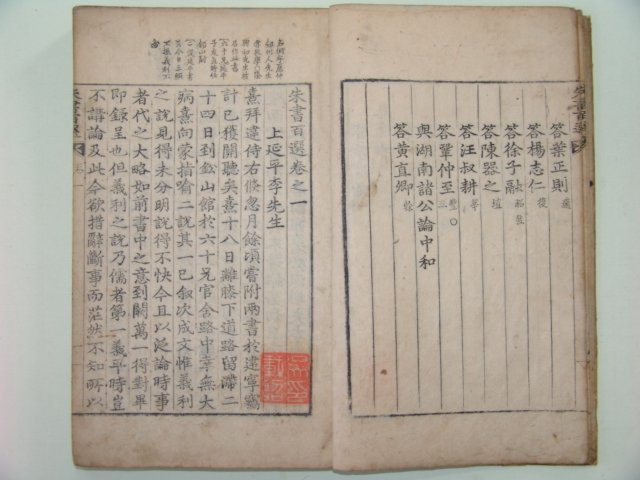 答葉正則 適
答楊志仁 復
答徐子融
答陳器之 埴
答汪叔耕
答鞏仲至 豐
與湖南諸公論中和
答黃直卿 榦
朱書百選卷之一
上延平李先生
熹拜違侍右倏忽月餘頃嘗附兩書於建寧竊
計已獲關聽矣熹十八日離膝下道路留滯二
十四日到鈆山館於六十兄官舍路中幸無大
病熹向蒙指喻二說其一已叙次成文惟義利
之說見得未分明說得不快今且以泛論時事
者代之大略如前書中之意到闕萬一得對畢
即録呈也但義利之說乃儒者第一義平時豈
不講論及此今欲措辭斷事而茫然不知所以